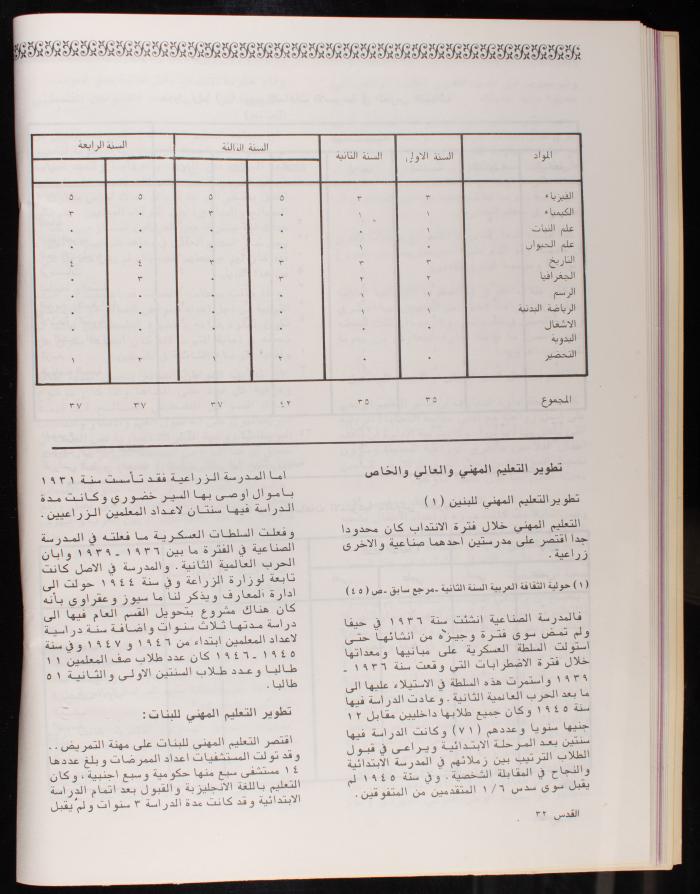 المواد السنة الاولى السنة الثانية السنة الثالثة السنة الرابعة
الفيزياء ٣ ٣ ٥ ٥ ٥ ٥
الكيمياء ١ ١ ٠ ٣ ٠ ٣
علم النبات ١ ٠ ٠ ٠ ٠ ٠
علم الحيوان ٠ ١ ٠ ٠ ٠ ٠
التاريخ ٣ ٣ ٣ ٣ ٤ ٤
الجغرافيا ٢ ٢ ٣ ٠ ٣ ٠
الرسم ١ ١ ٠ ٠ ٠ ٠
الرياضة البدنية ١ ١ ٠ ٠ ٠ ٠
الاشغال ٠ ٠ ٠ ٠ ٠
اليدوية
التحضير ٠ ٠ ٢ ١ ٢ ١
المجموع ٣٥ ٣٥ ٤٢ ٣٧ ٣٧ ٣٧
تطوير التعليم المهني والعالي والخاص
تطوير التعليم المهني للبنين (١)
التعليم المهني خلال فترة الانتداب كان محدودا
جدا اقتصر على مدرستين احدهما صناعية والاخرى
زراعية .
(١) حولية الثقافة العربية السنة الثانية ـ مرجع سابق ـ ص (٤٥)
فالمدرسة الصناعية انشئت سنة ١٩٣٦ في حيفا
ولم تمض سوى فترة وجيزه من انشائها حتى
استولت السلطة العسكرية على مبانيها ومعداتها
خلال فترة الاضطرابات التي وقعت سنة ١٩٣٦ ـ
١٩٣٩ واستمرت هذه السلطة في الاستيلاء عليها الى
ما بعد الحرب العالمية الثانية . وعادت الدراسة فيها
سنة ١٩٤٥ وكان جميع طلابها داخليين مقابل ١٢
جنيها سنويا وعددهم (٧١) وكانت الدراسة فيها
سنتين بعد المرحلة الابتدائية ويراعى في قبول
الطلاب الترتيب بين زملائهم في المدرسة الابتدائية
والنجاح في المقابلة الشخصية . وفي سنة ١٩٤٥ لم
يقبل سوى سدس ١/٦ المتقدمين من المتفوقين .
اما المدرسة الزراعية فقد تأسست سنة ١٩٣١
باموال اوصى بها السير خضوري وكانت مدة
الدراسة فيها سنتان لاعداد المعلمين الزراعيين .
وفعلت السلطات العسكرية ما فعلته في المدرسة
الصناعية في الفترة ما بين ١٩٣٦ ـ ١٩٣٩ وابان
الحرب العالمية الثانية . والمدرسة في الاصل كانت
تابعة لوزارة الزراعة وفي سنة ١٩٤٤ حولت الى
ادارة المعارف ويذكر لنا ما سيوز وعقراوي بأنه
كان هناك مشروع بتحويل القسم العام فيها الى
دراسة مدتها ثلاث سنوات واضافة سنة دراسية
لاعداد المعلمين ابتداء من ١٩٤٦ و ١٩٤٧ وفي سنة
١٩٤٥ ـ ١٩٤٦ كان عدد طلاب صف المعلمين ١١
طالبا وعدد طلاب السنتين الاولى والثانية ٥١
طالبا .
تطوير التعليم المهني للبنات :
اقتصر التعليم المهني للبنات على مهنة التمريض . .
وقد تولت المستشفيات اعداد الممرضات وبلغ عددها
١٤ مستشفى سبع منها حكومية وسبع اجنبية ، وكان
التعليم باللغة الانجليزية والقبول بعد اتمام الدراسة
الابتدائية وقد كانت مدة الدراسة ٣ سنوات ولم يقبل
القدس ٣٢